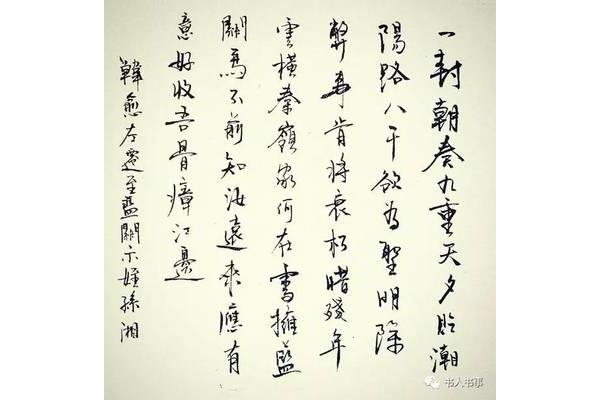 一封朝奏九重天夕貶潮
陽路八千欲為聖明除
弊事肯將衰朽惜殘年
雲橫秦嶺家何在雪擁藍
關馬不前知汝遠來應有
意好收吾骨瘴江邊
韓愈左遷至藍關示姪孫湘
书人书事